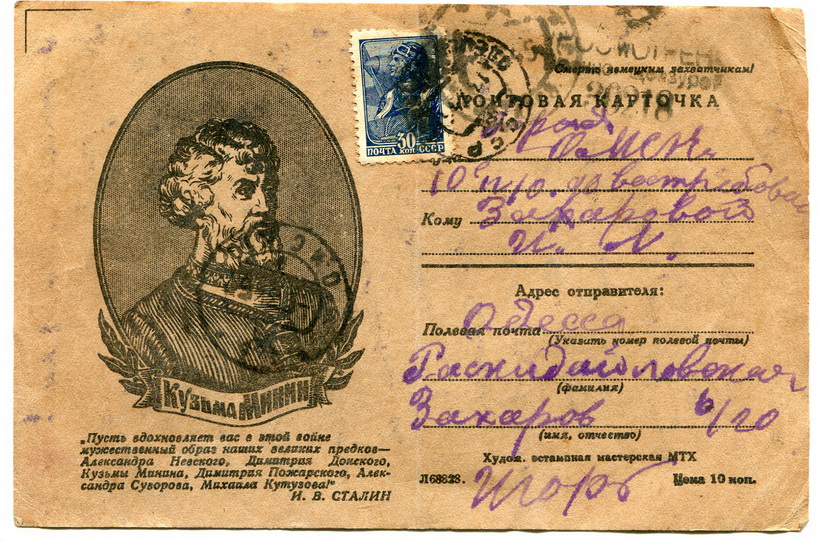 Смерть немецким захватчикам!
ПОЧТОВАЯ КАРТОЧКА
30
ПОЧТА КОП СССР
20218
Город
Омск
10 п/о. до востребован
Кому Захаровой
И. Л.
Адрес отправителя:
Полевая почта Одесса
(Указать номер полевой почты)
Раскидайловская
(фамилия)
Захаров 6/20
(имя, отчество)
Худож. эстампная мастерская МТХ
Л68828. Цена 10 коп.
Игорь
КУЗЬМА МИНИН
„Пусть вдохновляет вас в этой войне
мужественный образ наших великих предков—
Александра Невского, Димитрия Донского,
Кузьмы Минина, Димитрия Пожарского, Алек-
сандра Суворова, Михаила Кутузова!"
И. В. СТАЛИН